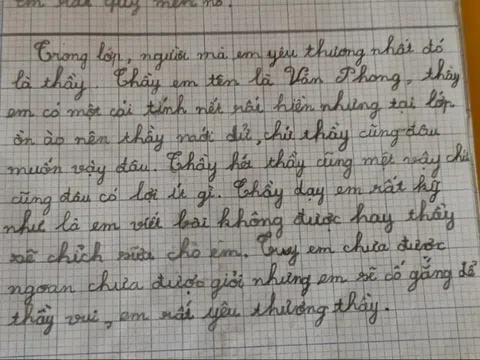 em rất quý mến nó.
Trong lớp, người mà em yêu thương nhất đó
là thầy. Thầy em tên là Văn Phong, thầy
em có một cái tính nết rất hiền nhưng tại lớp
ồn ào nên thầy mới dữ, chứ thầy cũng đâu
muốn vậy đâu. Thầy hét thầy cũng mệt vậy chứ
cũng đâu có lợi ít gì. Thầy dạy em rất kỹ
như là em viết bài không được hay thầy
sẽ chích sữa cho em. Tuy em chưa được
ngoan chưa được giỏi nhưng em sẽ cố gắng để
thầy vui, em rất yêu thương thầy.